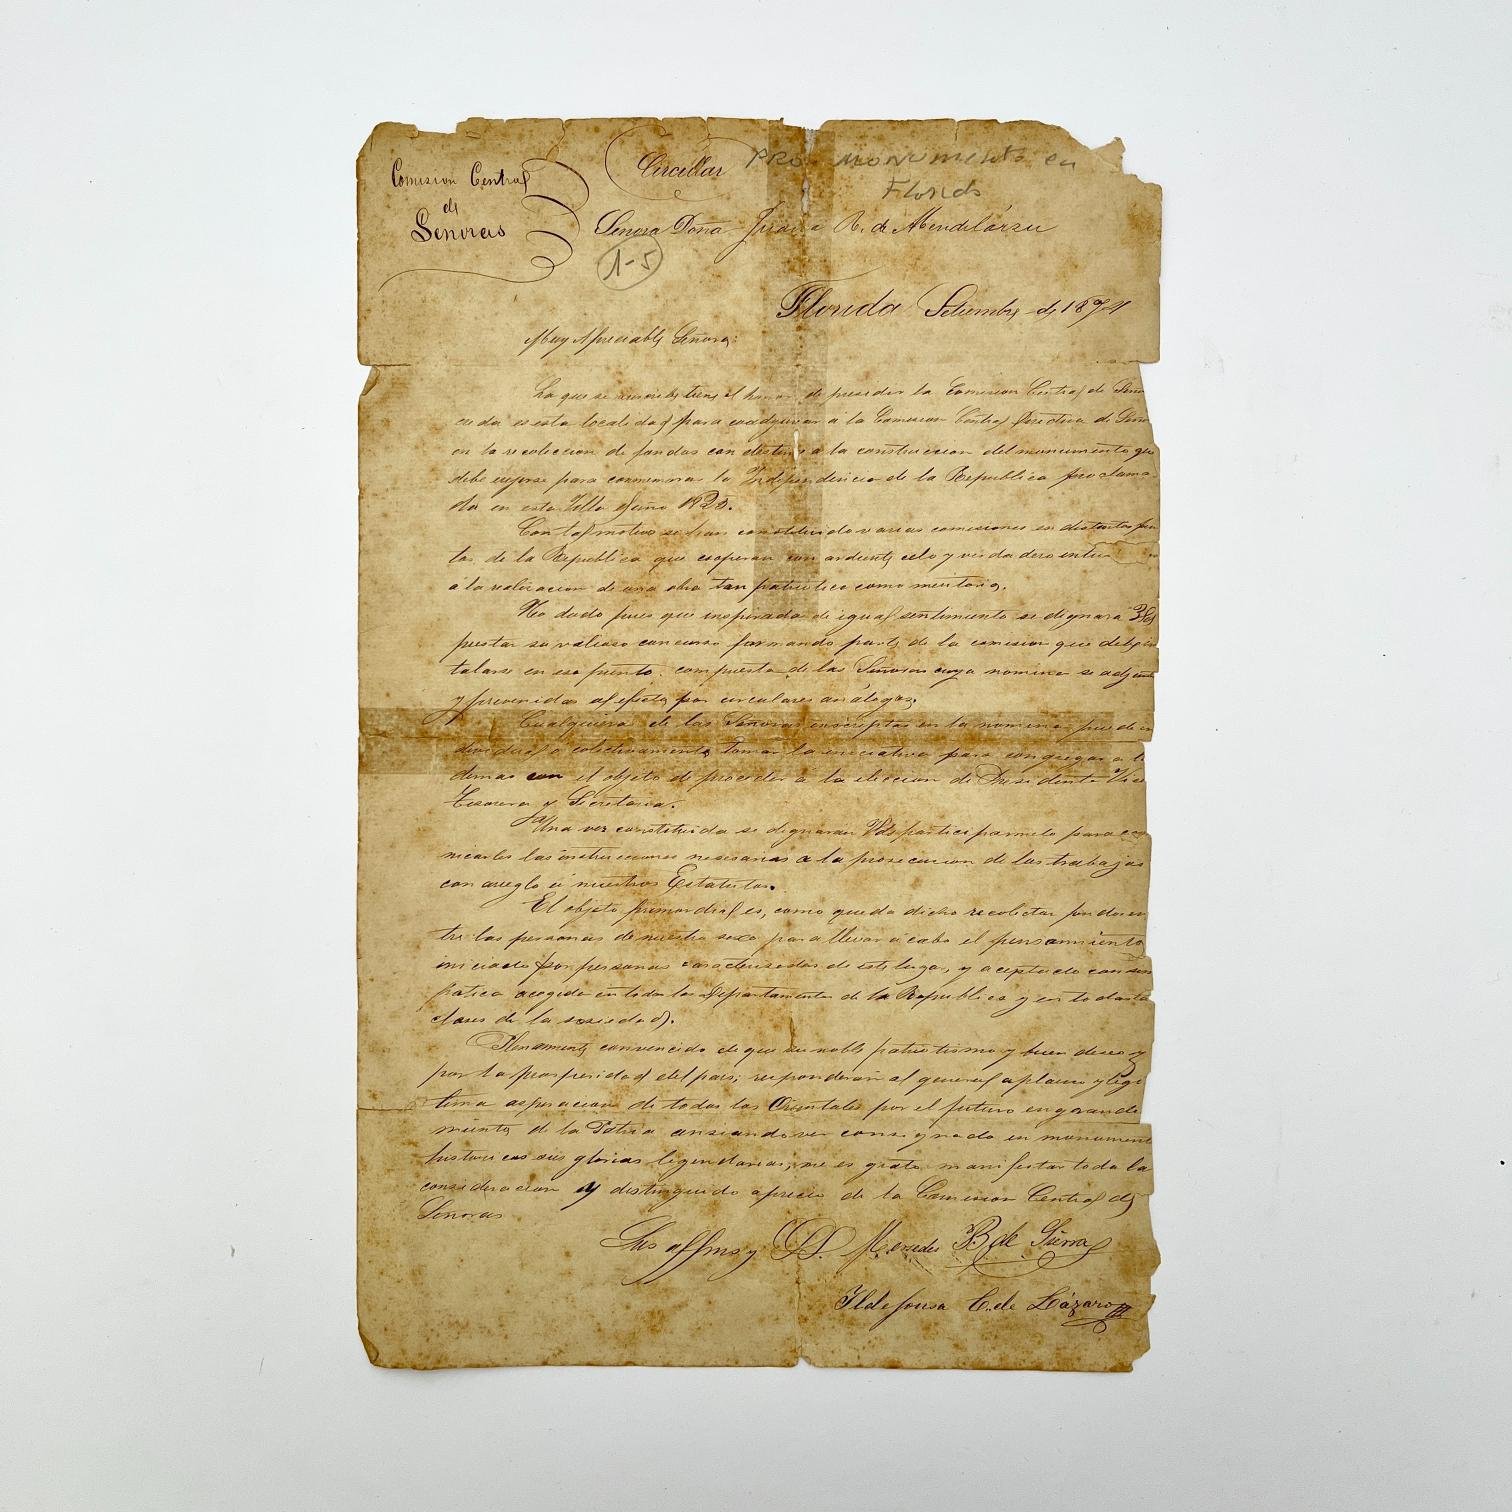 Comision Central
de
Señoras
Circular
PRO - MONUMENTO en
Florida
Señora Doña Juana R. de Mendilárzu
1-5
Florida Setiembre de 1874
Muy Apreciable Señora:
La que suscribe tiene el honor de presidir la Comision Central de Seño
en esta localidad para coadyuvar á la Comision Central Directiva de Seño
en la recoleccion de fondos con destino á la construccion del monumento que
debe erijirse para conmemorar la Independencia de la Republica proclama
da en esta Villa el año 1825.
Con tal motivo se han constituido varias comisiones en distintos pun
tos de la Republica que cooperan con ardiente celo y verdadero entu
a la realizacion de una obra tan patriotica como meritoria.
No dudo pues que inspirada de igual sentimiento se dignará
prestar su valioso concurso formando parte de la comision que debe ins
talarse en ese punto compuesta de las Señoras cuya nomina se adjunta
y prevenidas al efecto por circulares análogas.
Cualquiera de las Señoras inscriptas en la nomina puede in
dividual o colectivamente tomar la iniciativa para congregar a la
demas con el objeto de proceder á la eleccion de Presidenta Vice
Tesorera y Secretaria.
Una vez constituida se dignarán Vds participarmelo para comu
nicarles las instrucciones necesarias a la prosecucion de los trabajos
con arreglo á nuestros Estatutos.
El objeto primordial es, como queda dicho recolectar fondos en
tre las personas de nuestro sexo para llevar á cabo el pensamiento
iniciado por personas caracterizadas de este lugar, y aceptado con sim
patica acogida en todos los Departamentos de la Republica y en todas las
clases de la sociedad.
Plenamente convencida de que su noble patriotismo y buen deseo
por la prosperidad del pais; responderán al general aplauso y legi
tima aspiracion de todos los Orientales por el futuro engrande
cimiento de la Patria ansiando ver consignado en monument
historicos sus glorias legendarias, me es grato manifestar toda la
consideracion y distinguido aprecio de la Comision Central de
Señoras
Mercedes B de Sierra
Ildefonsa C. de Lázaro